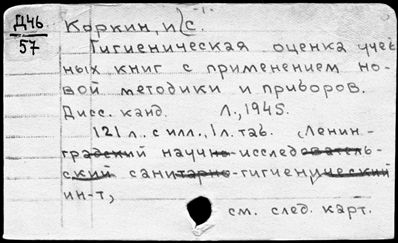 Дч6
57
Коркин, И. С.
Гигиеническая оценка учеб
ных книг с применением но-
вой методики и приборов.
Дисс. канд. Л., 1945.
121 л. с илл., 1 л. таб. (Ленин-
градский научно-исследователь-
ский санитарно-гигиенический
ин-т,
см. след. карт.